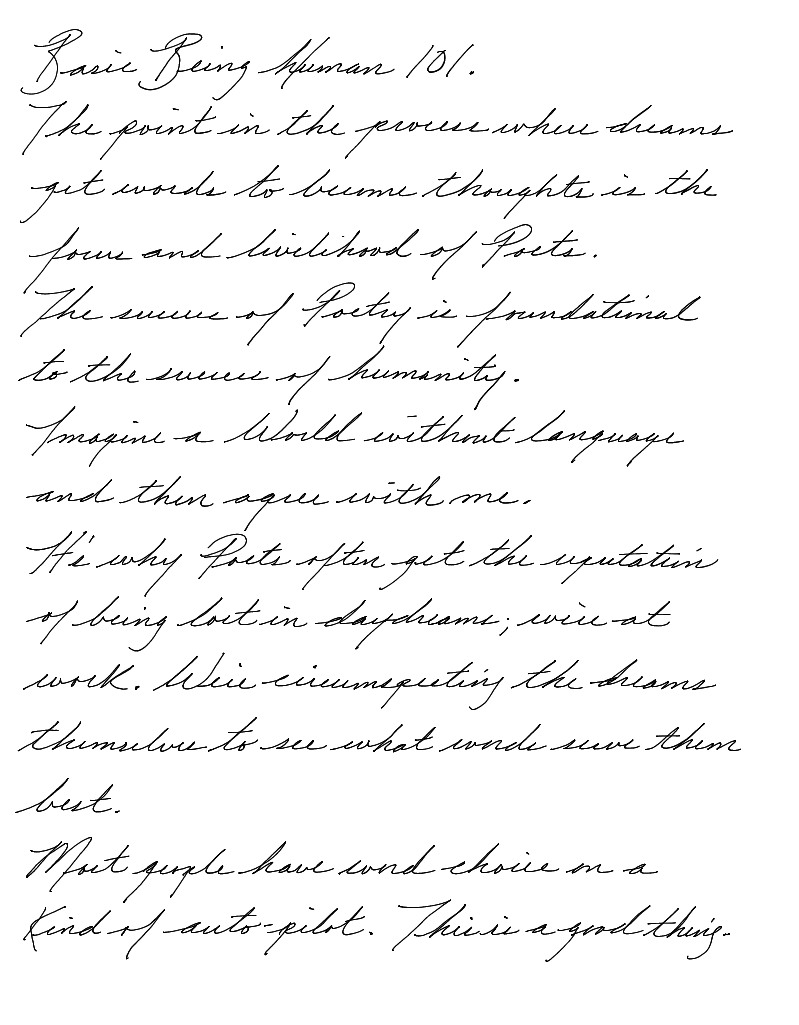 Basic Being Human 101.
The point in the process where dreams
get words to become thoughts is the
focus and livelihood of Poets.
The success of Poetry is foundational
to the success of humanity.
Imagine a World without language
and then agree with me.
It's why Poets often get the reputation
of being lost in daydreams; we're at
work. We're circumspecting the dreams
themselves to see what words serve them
best.
Most people have word choice on a
Kind of auto-pilot. This is a good thing.